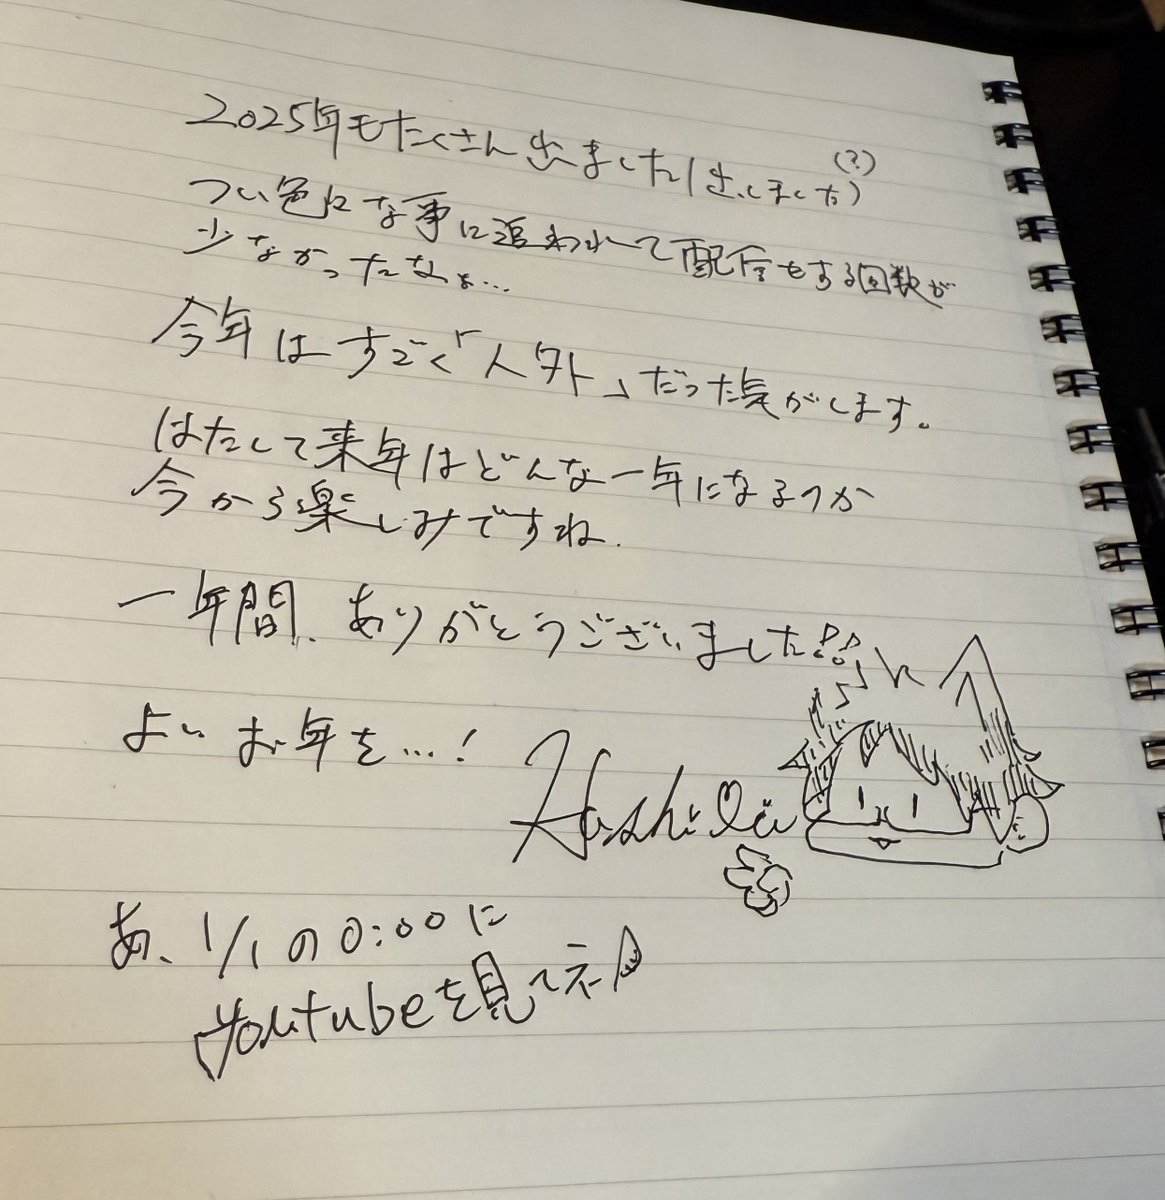 2025年もたくさん出ました/出しました(?)
つい色んな事に追われて配信をする回数が
少なかったなぁ…
今年はすごく「人外」だった気がします。
はたして来年はどんな一年になるのか
今から楽しみですね.
一年間、ありがとうございました!!
よいお年を…!
あ、1/1の0:00に
Youtubeを見てネ